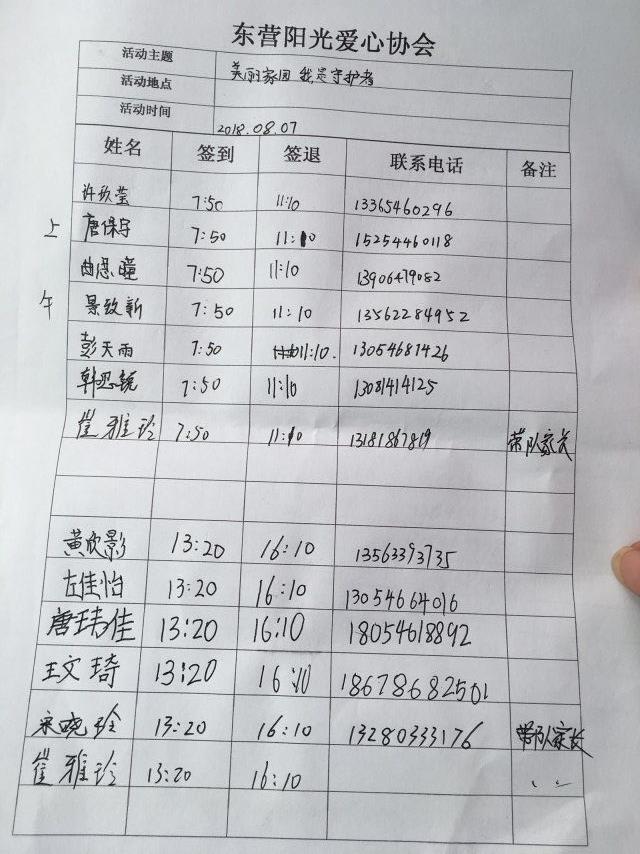 东营阳光爱心协会
活动主题 美丽家园 我是守护者
活动地点
活动时间 2018.08.07
姓名 签到 签退 联系电话 备注
许欣莹 7:50 11:10 13365460296
上 唐保宇 7:50 11:10 15254460118
曲思瞳 7:50 11:10 13906479082
午 景致新 7:50 11:10 13562284952
彭天雨 7:50 11:10. 13054681426
韩思锐 7:50 11:10 13081414125
崔雅玲 7:50 11:10 13181867819 带队家长
黄欣影 13:20 16:10 13563393735
左佳怡 13:20 16:10 13054664016
唐玮佳 13:20 16:10 18054618892
王文琦 13:20 16:10 18678682501
宋晓玲 13:20 16:10 13280333176 带队家长
崔雅玲 13:20 16:10